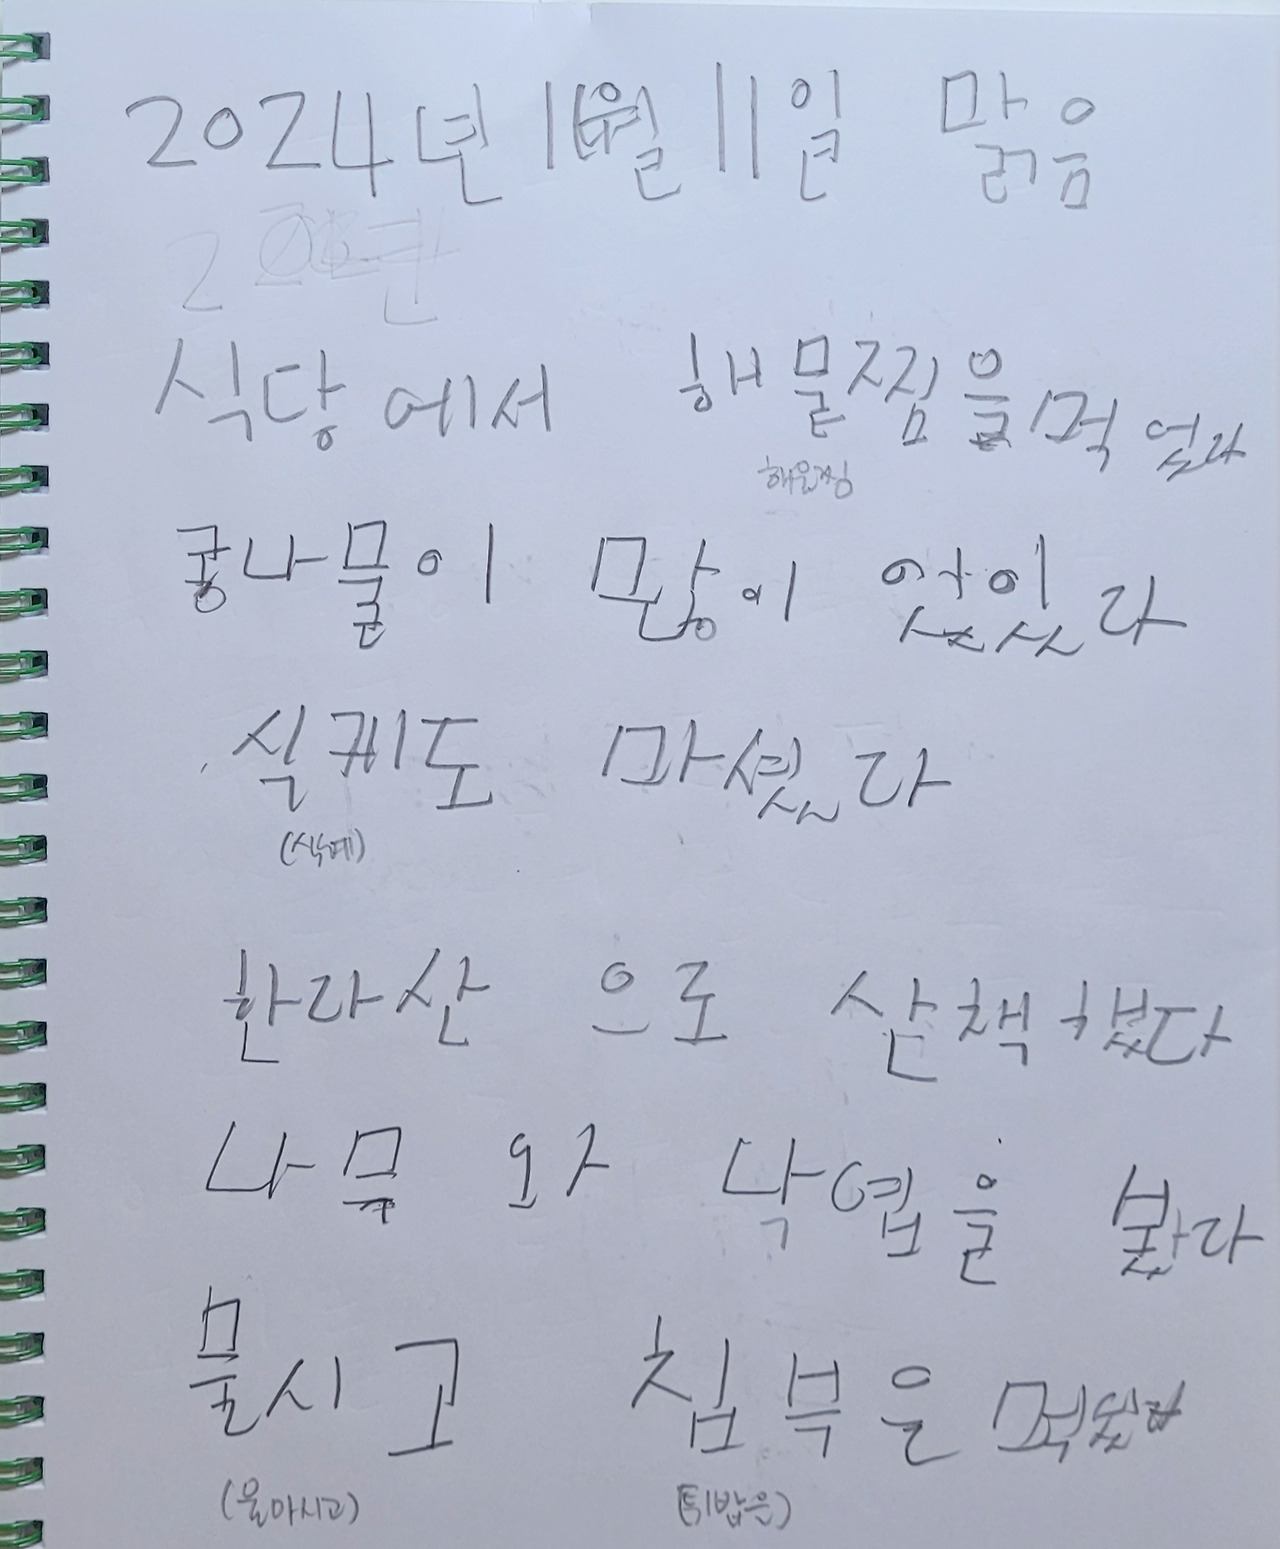 2024년 11월 11일 맑음
식당에서 해물찜을 먹었다
콩나물이 많이 있었다
식케도 마셨다
(식혜)
한라산 으로 산책했다
나무 와 낙엽을 봤다
물시고 침북은 먹었다
(물마시고) (튀밥은)